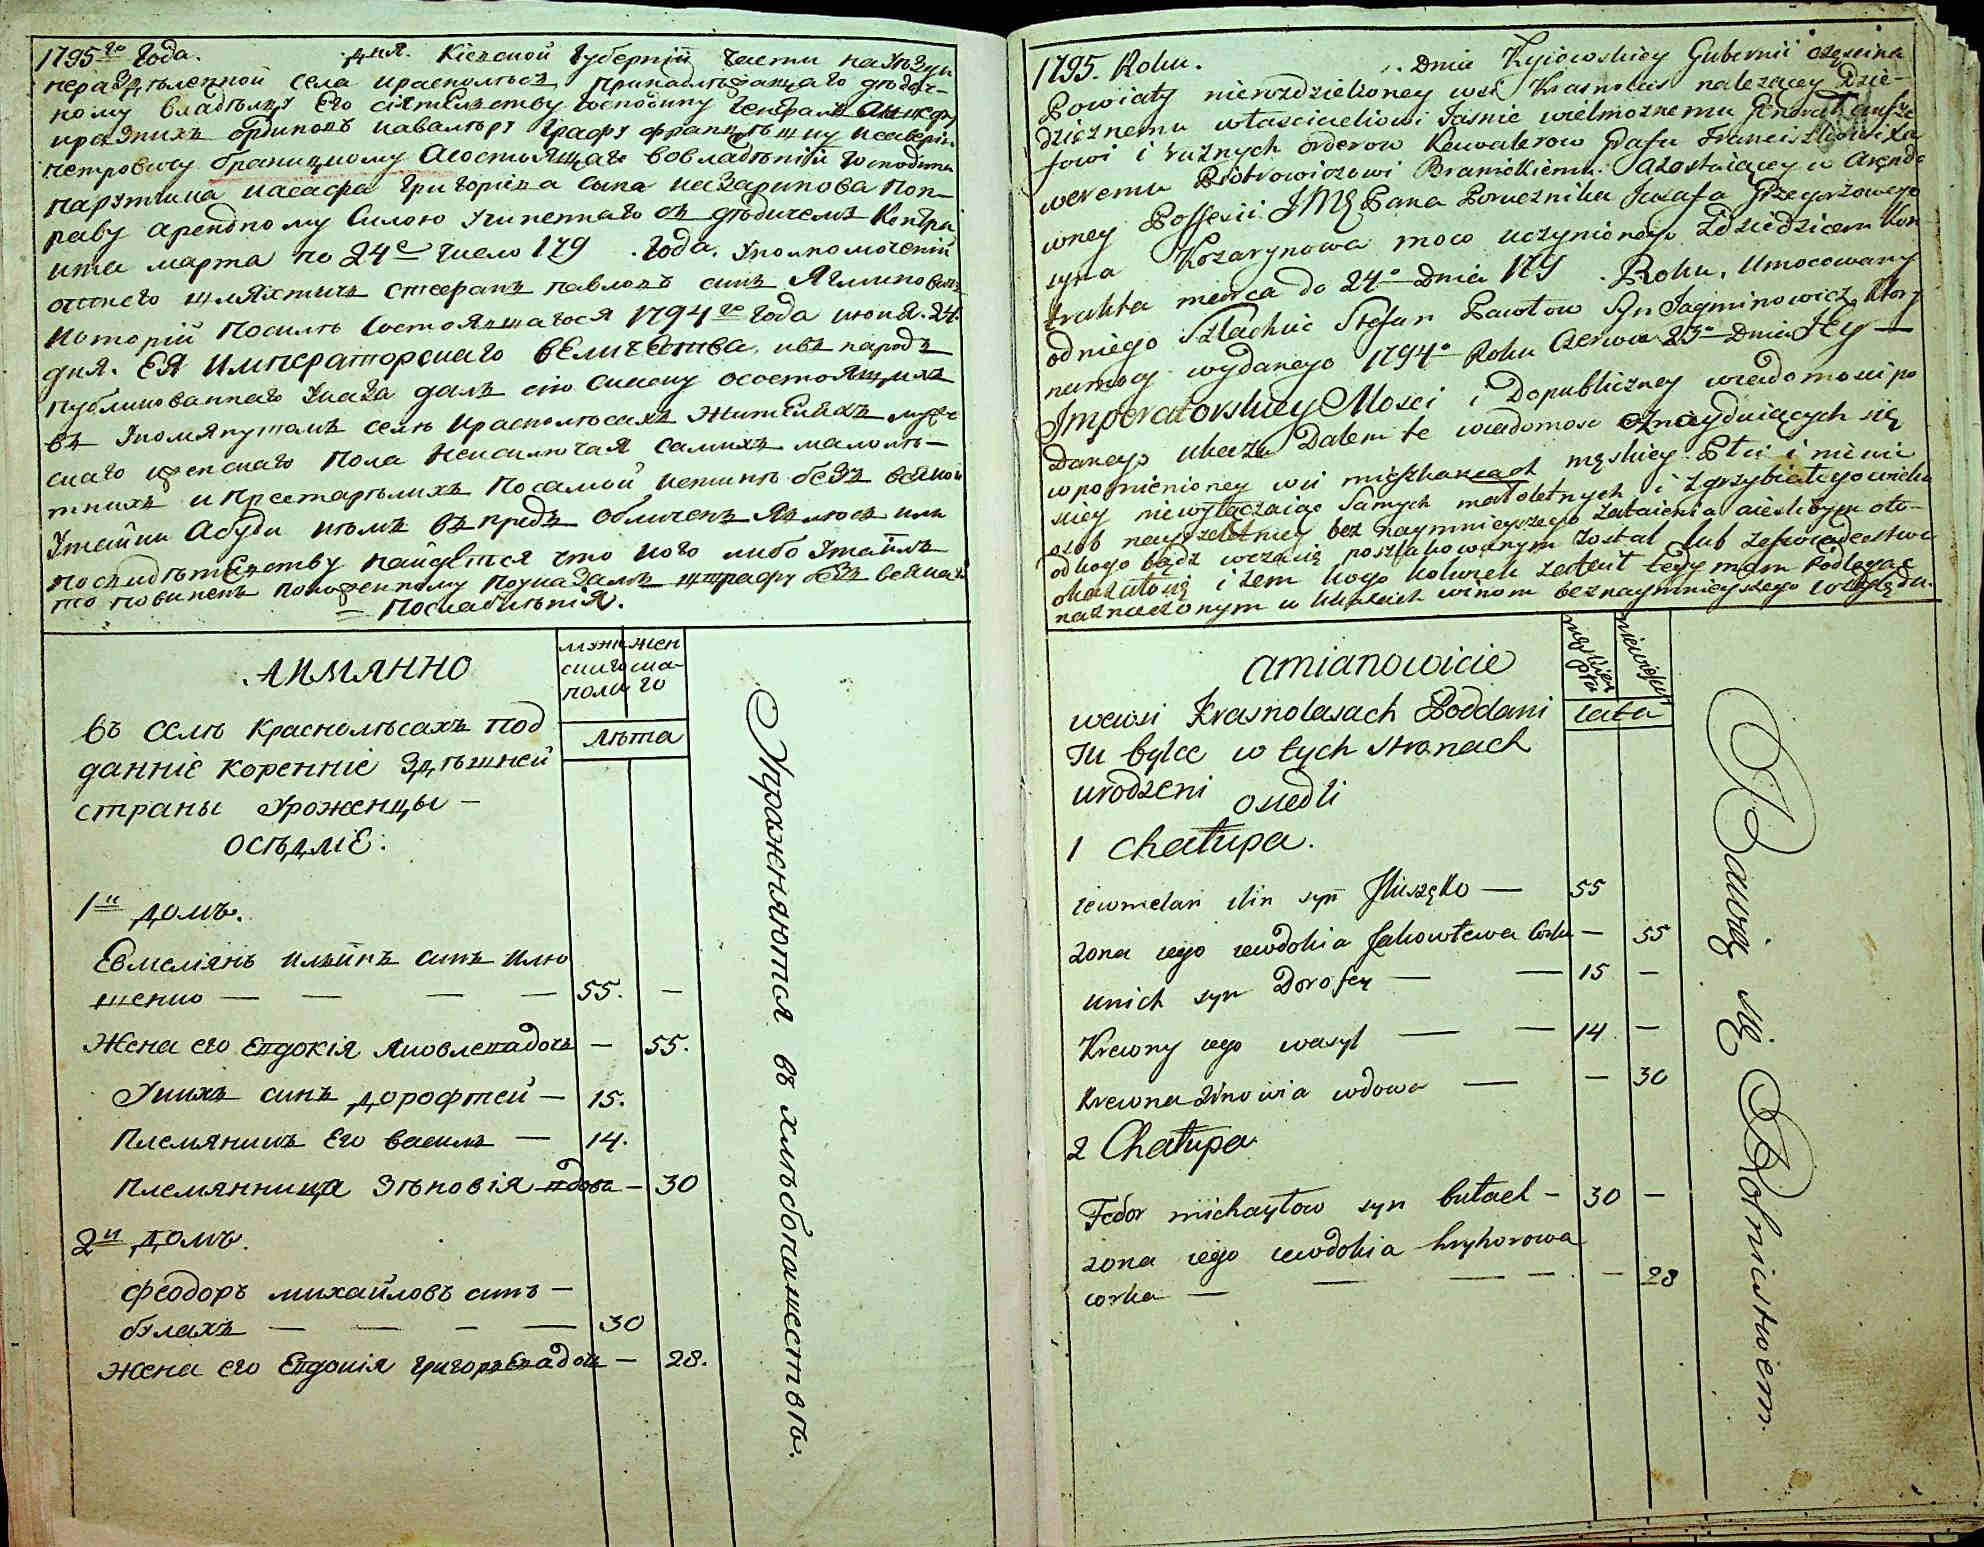 1795го Года. дня. Кіевской Губерніи части на уѣзди
нераздѣленной села краснолѣсъ принадлѣжащаго дѣдич-
ному владѣльцу Его сіятельству господину генералъ аншефу
и разнихъ ординовъ кавалѣру Графу францѣшку ксаверію
петровичу браницкому Асостоящаго вовладѣніи господина
парутчика иасафа григоріева сына казаринова поп-
раву арендному Силою учиненнаго съ дѣдичемъ Контра
кта марта по 24е число 179 . года, уполномоченій
отонего шляхтичъ стефанъ павловъ синъ Ягминовичъ
Которій посилѣ Состоявшагося 1794го года июня. 24.
дня. ЕЯ Императорскаго ВЕЛИЧЕства, ивъ народъ
публикованнаго указа далъ сію сказку осостоящихъ
въ упомянутомъ селѣ Краснолѣсахъ жителяхъ муже
скаго иженскаго пола неисключая самихъ малолѣ-
тнихъ и престарѣлихъ посамой истинѣ безъ всякой
утайки Абуди кѣмъ въпредь обличенъ явлюсь или
посвидѣтельству найдется что кого либо утаилъ
то повиненъ положенному поуказамъ штрафу безъ всякаго
Послабленія.
АИМЯННО
мужескаго пола
женскаго
Лѣта
въ селѣ Краснолѣсахъ под
данніе коренніе здѣшней
страны уроженцы –
осѣдліе:
1й домъ.
Евмеліянъ ильинъ синъ илю
шенко — — — — 55. —
Жена его Евдокія Яковлевадочь — 55.
Унихъ синъ дорофтей — 15.
Племянникъ Его василь — 14.
Племянница Зѣновія вдова — 30
2й домъ.
Феодоръ михайловъ синъ —
булахъ — — — — 30
жена его Евдокія григорьевадочь — 28.
Упражняются въ хлѣбопашествѣ.
1795. Roku. Dnia Kyiowskiey Gubernii częścina
Powiaty nierozdzieloney wsi Krasnolas należącey Dzie-
dzicznemu właścicieliowi Jaśnie wielmożnemu Generał anszo
fowi i rużnych orderow Kawalerow Grafu Franciszkowi Xa
weremu Piotrowiczowi Branickiemu. azostaiącey w Arędo
wney Possesii JMĘ Pana Porucznika Jozafa Grzegorzowego
syna Kozarynowa moco uczynionego zdziedzicem Kon
traktu miarca do 24o Dnia 179 . Roku. Umocowany
odniego Szlachcic Stefan Pawłow Syn Jagminowicz, Ktory
namocy wydanego 1794o Roku Czerwca 23o Dnia Jey —
Imperatorskiey Mosci i Dopubliczney wiadomosci po
Danego ukazu Dałem te wiadomosc oznaydujących się
wpomienioney wsi mięszkańcach męskiey Płci i niewie
skiey niewyłączaiąc Samych małoletnych i zgrzybiałego wieku
osob nayrzetelniey bez naymnieyszego zataienia aieslibym oto-
odkogo bądz wczasię poszlakowanym został lub zaswiadectwa
okazałosię iżem kogo kolwiek zataił tedy mam Podlegać
naznaczonym w Ukazach winom beznaymnieyszego względu.
amianowicie
męskiey płci
niewieściey
Lata
wewsi Krasnolasach Poddani
Tu bylce w tych stronach
urodzeni osiedli
1 chałupa.
iewmelan ilin syn Jluszęko — 55
zona iego iewdokia Jakowlewa Corka — 55
unich syn Dorofey — — 15 —
Krewny iego wasyl — — 14 —
Krewna zinowia wdowa — — 30
2 Chałupa
Fedor michayłow syn bułach – 30 —
zona iego iewdokia hryhorowa
corka — — — — — 28
Bawią się Rolnictwiem